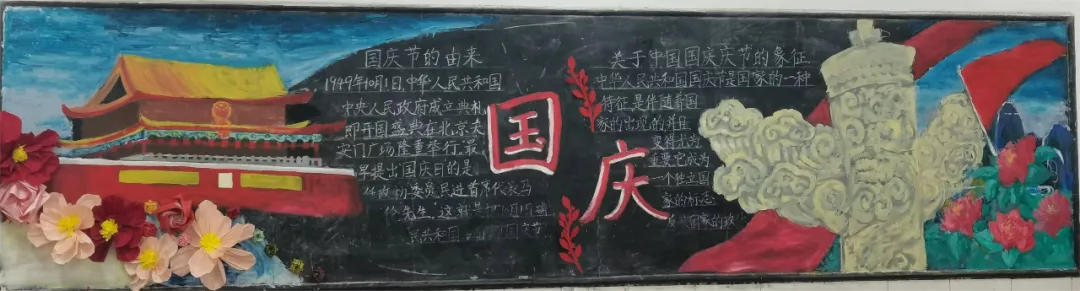 国庆节的由来
1949年10月1日,中华人民共和国
中央人民政府成立典礼
即开国盛典在北京天
安门广场隆重举行最
早提出国庆日的是
委员民进首席代表马
伦先生,这就是
民共和国
国庆
关于中国国庆庆节的象征
中华人民共和国国庆节是国家的一种
特征是伴随着国
家的出现的并且
变得尤为
重要它成为
一个独立国
家的标志